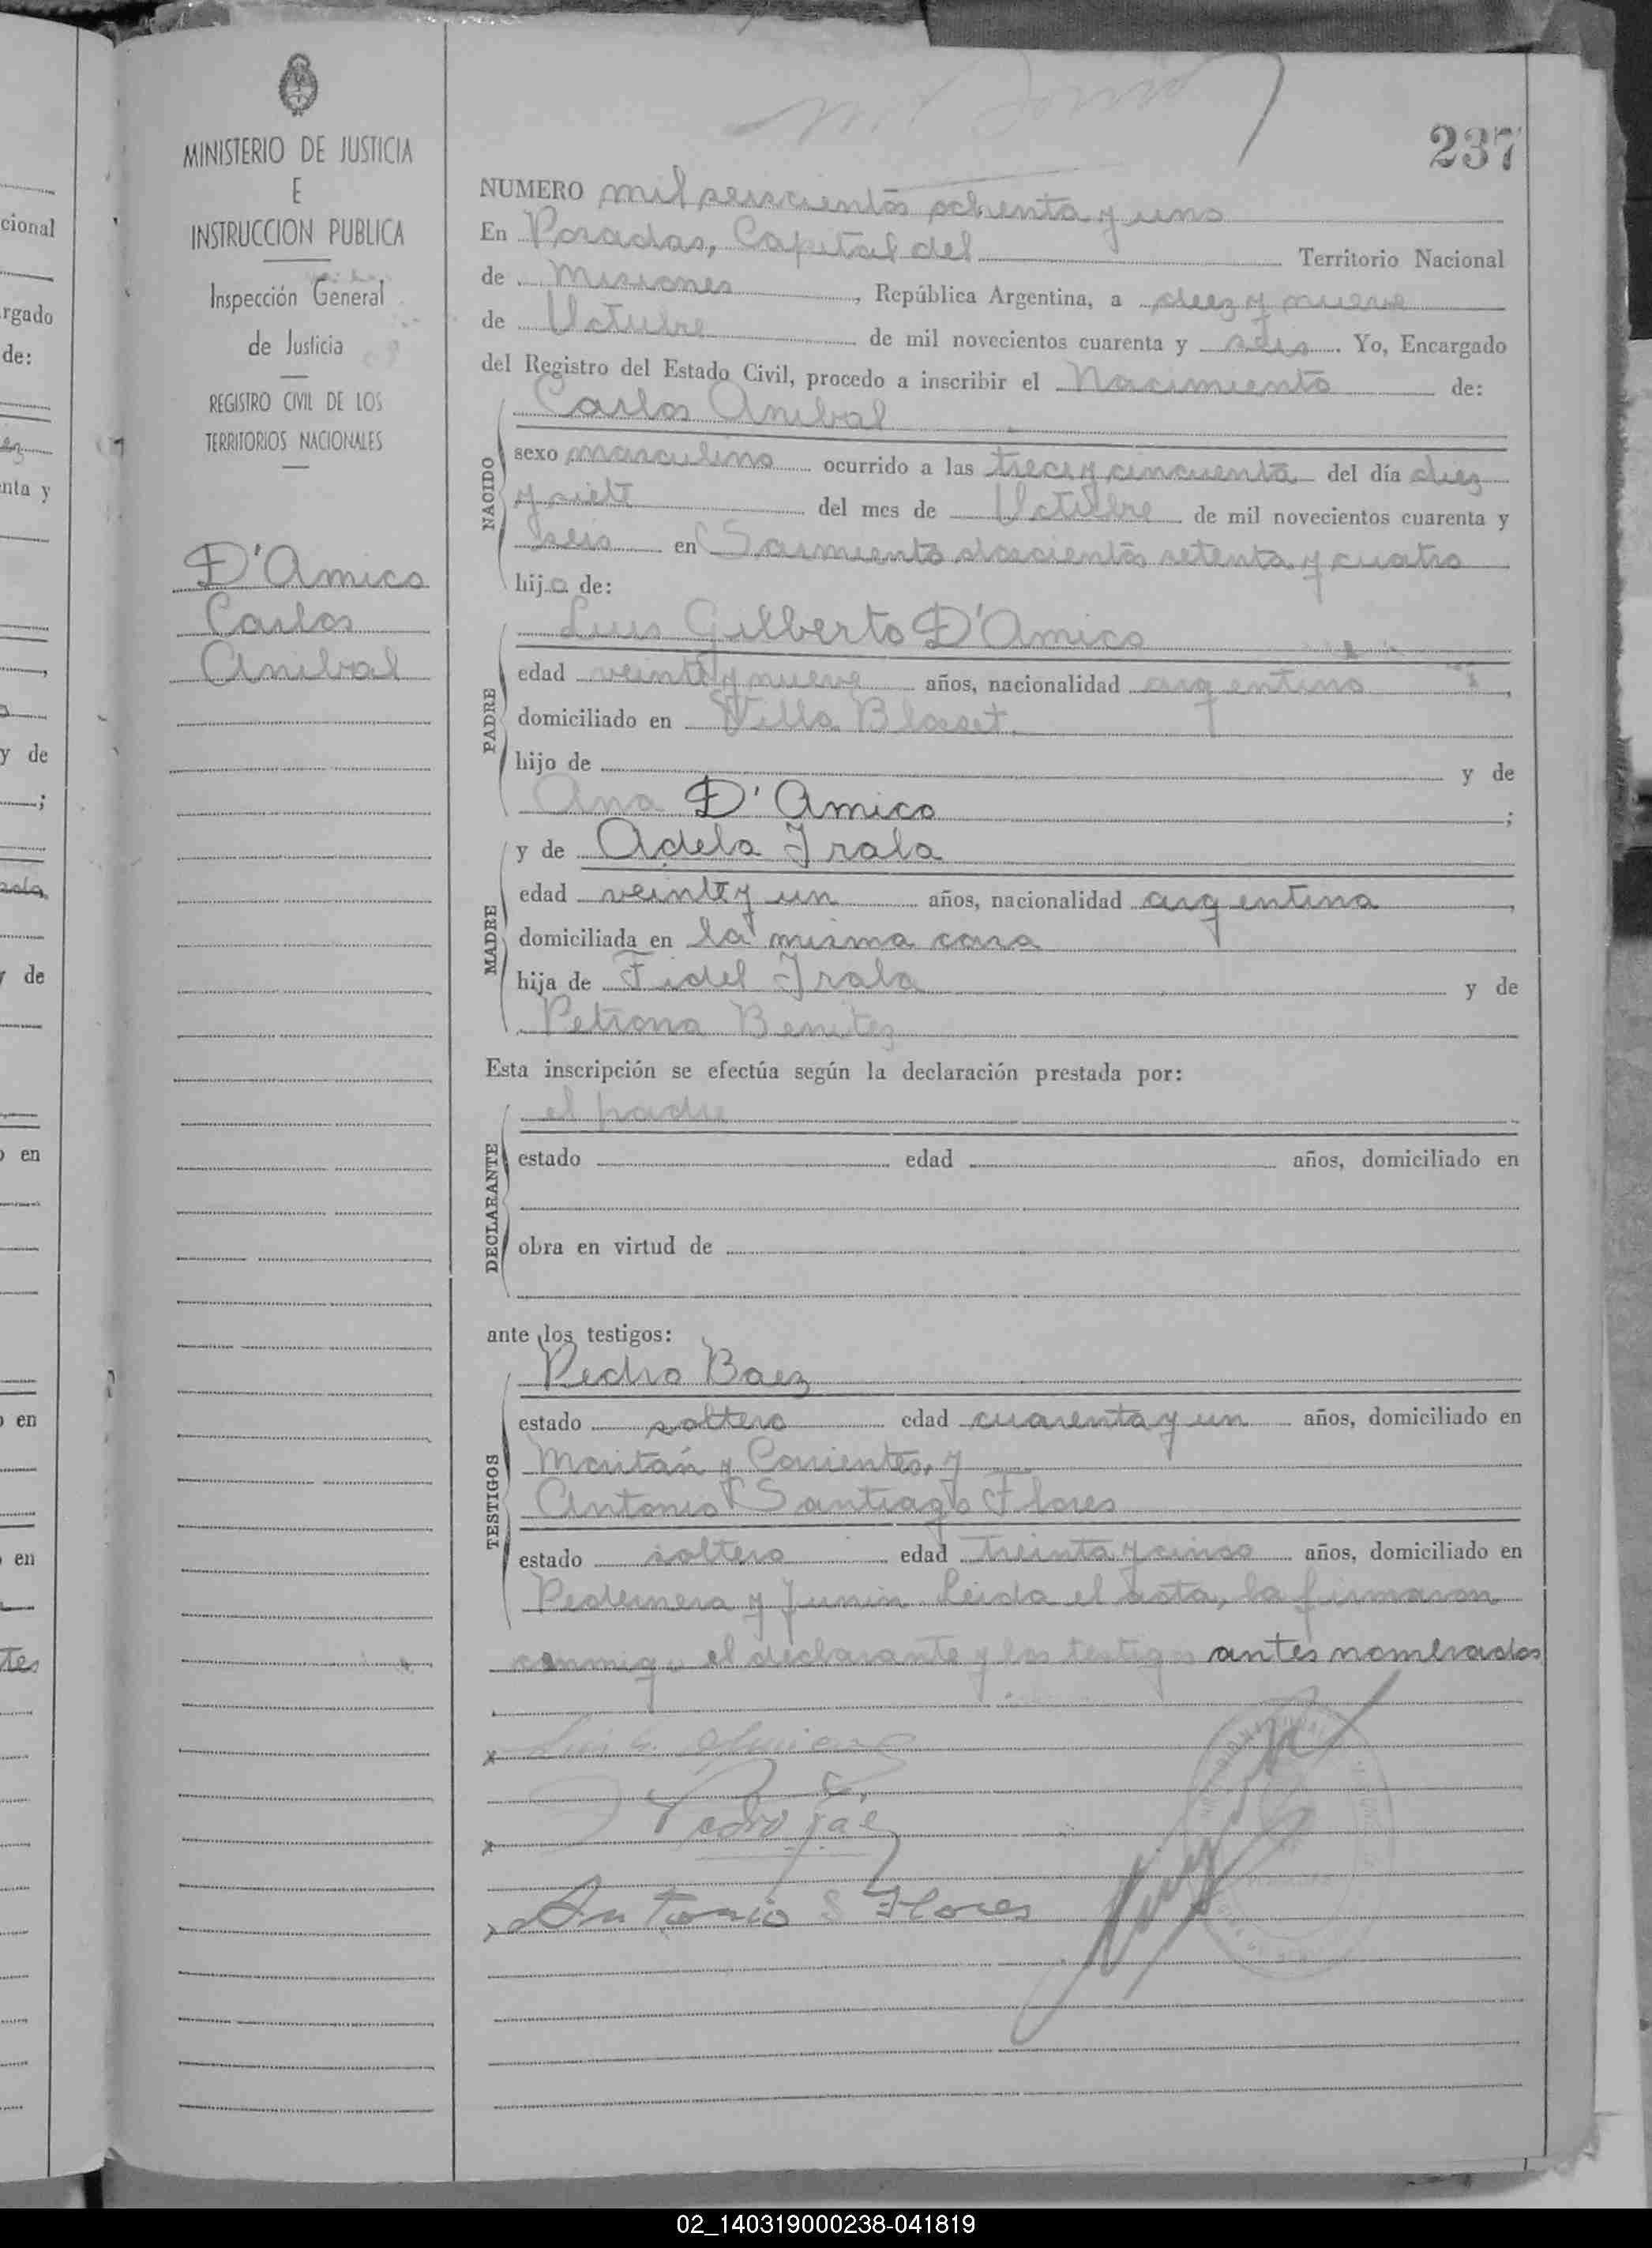 MINISTERIO DE JUSTICIA
E
INSTRUCCION PUBLICA
Inspección General
de Justicia
REGISTRO CIVIL DE LOS
TERRITORIOS NACIONALES
D'Amico
Carlos
Anibal
237
NUMERO mil seiscientos ochenta y uno
En Posadas, Capital del Territorio Nacional
de Misiones, República Argentina, a diez y nueve
de Octubre de mil novecientos cuarenta y seis. Yo, Encargado
del Registro del Estado Civil, procedo a inscribir el Nacimiento de:
Carlos Anibal
NACIDO
sexo masculino ocurrido a las trece y cincuenta del día diez
y siete del mes de Octubre de mil novecientos cuarenta y
seis en Sarmiento doscientos setenta y cuatro
hijo de:
Luis Gilberto D'Amico
PADRE
edad veinte y nueve años, nacionalidad argentino,
domiciliado en Villa Blosset.
hijo de y de
Ana D'Amico;
y de Adela Irala
MADRE
edad veinte y un años, nacionalidad argentina,
domiciliada en la misma casa
hija de Fidel Irala y de
Petrona Benitez
Esta inscripción se efectúa según la declaración prestada por:
el padre
DECLARANTE
estado edad años, domiciliado en
obra en virtud de
ante los testigos:
Pedro Baez
TESTIGOS
estado soltero edad cuarenta y un años, domiciliado en
Maitán y Corrientes, y
Antonio Santiago Flores
estado soltero edad treinta y cinco años, domiciliado en
Pedernera y Junin. Leida el acta, la firmaron
conmigo el declarante y los testigos antes nombrados
Luis G.
Pedro
Antonio S Flores
cional
rgado
de:
nta y
y de
de
en
en
en
02_140319000238-041819